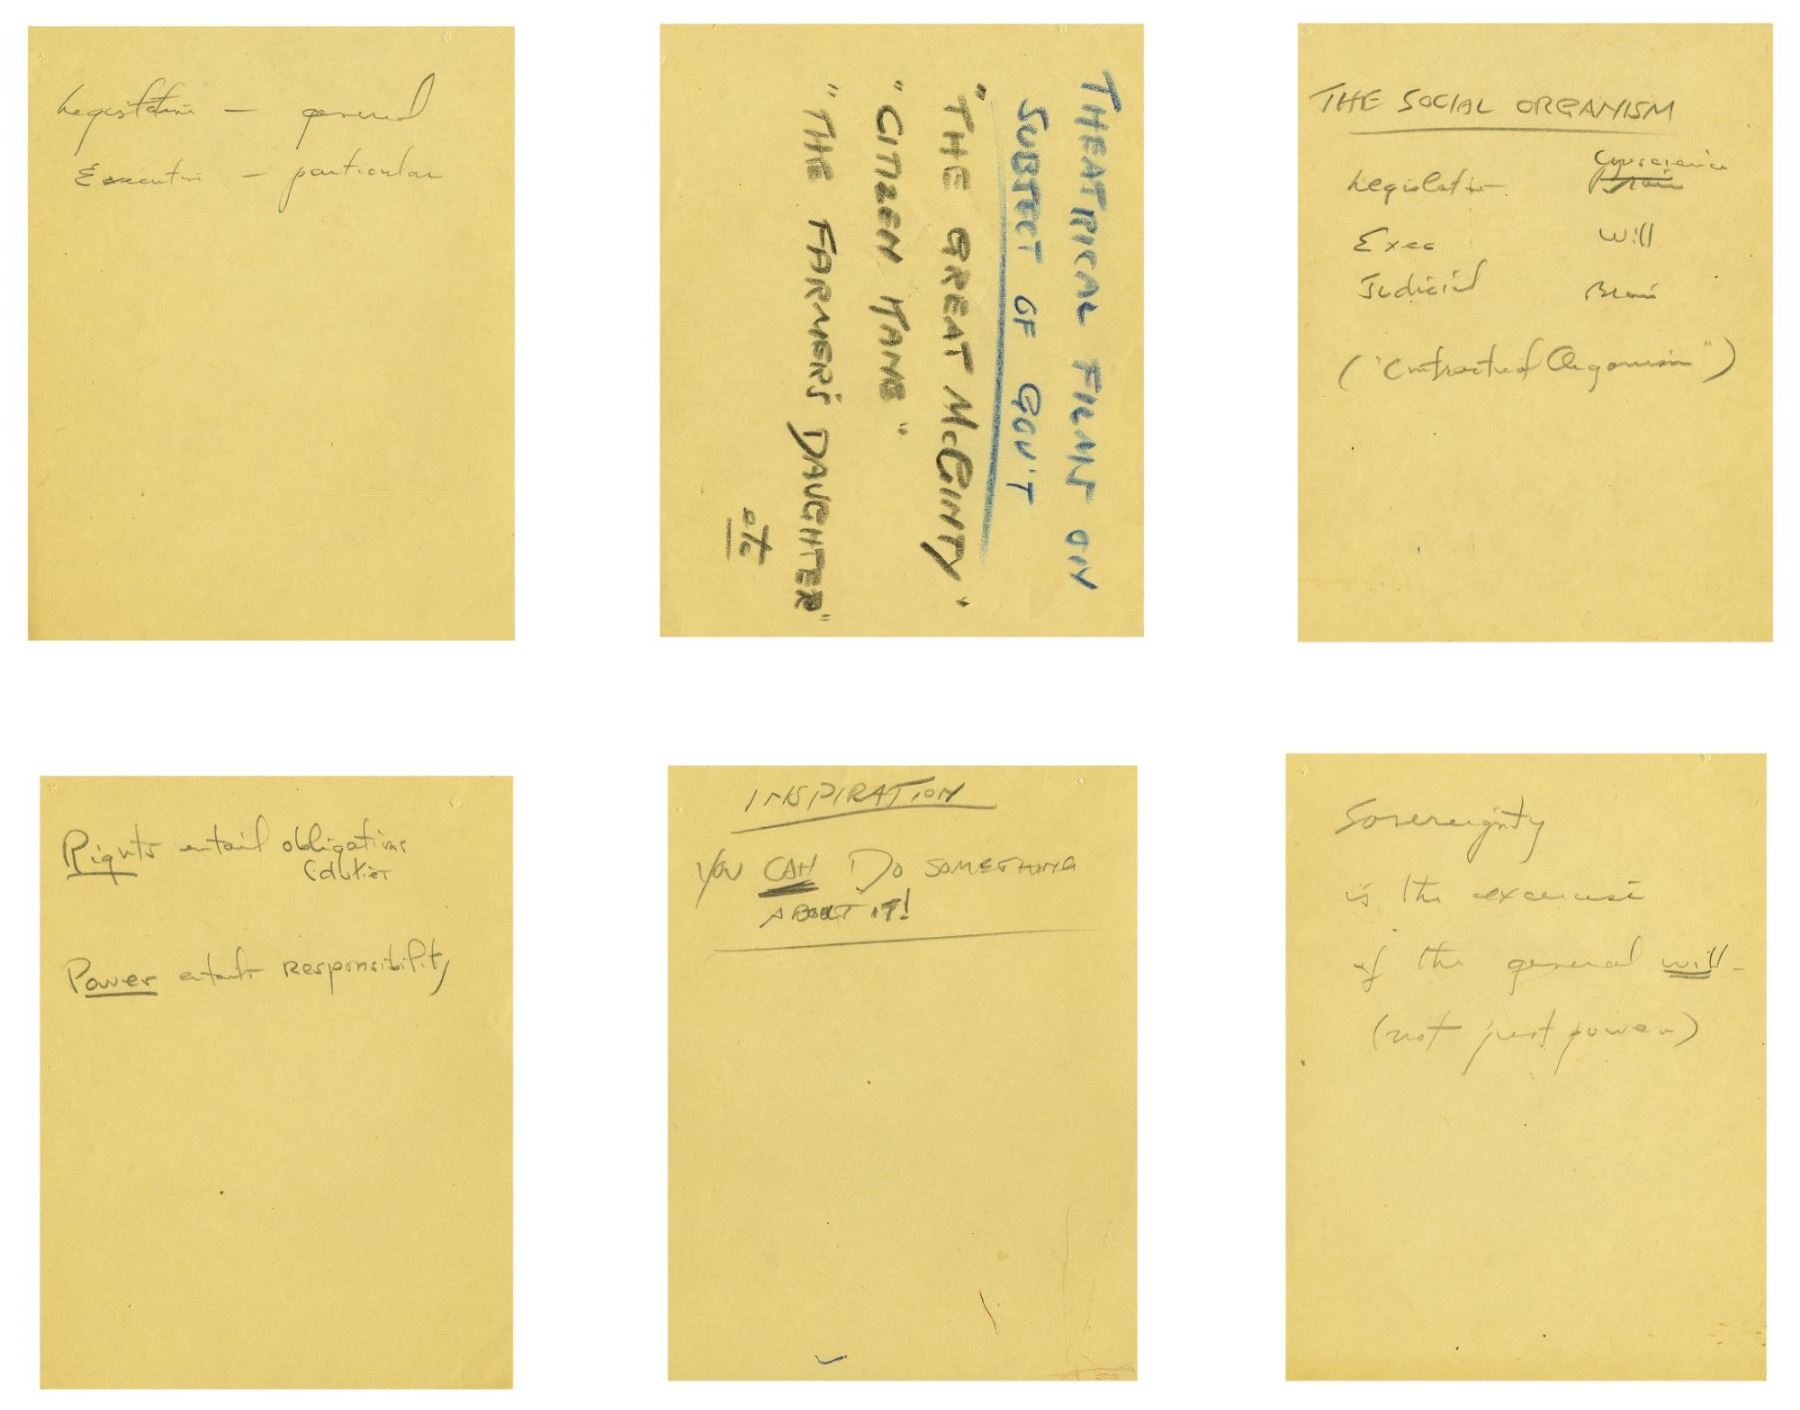 Legislative — general
Executive — particular
THEATRICAL FILMS ON
SUBJECT OF GOV'T
"THE GREAT McGINTY"
"CITIZEN KANE"
"THE FARMER'S DAUGHTER"
etc
THE SOCIAL ORGANISM
Conscience
Legislative Brain
Exec Will
Judicial Brain
("Contracted Organism")
Rights entail obligations
(duties
Power entails responsibility
INSPIRATION
YOU CAN DO SOMETHING
ABOUT IT!
Sovereignty
is the exercise
of the general will -
(not just power)